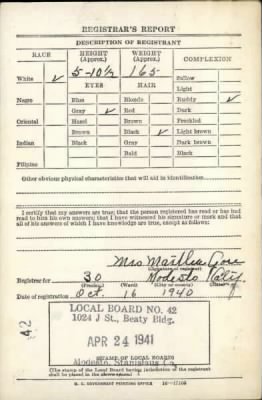 REGISTRAR'S REPORT
DESCRIPTION OF REGISTRANT
RACE HEIGHT (Approx.) WEIGHT (Approx.) COMPLEXION
5-10½ 165 Sallow
White ✓ EYES HAIR Light
Negro Blue Blonde Ruddy ✓
Gray ✓ Red Dark
Oriental Hazel Brown Freckled
Brown Black ✓ Light brown
Indian Black Gray Dark brown
Bald Black
Filipino
Other obvious physical characteristics that will aid in identification
I certify that my answers are true; that the person registered has read or has had
read to him his own answers; that I have witnessed his signature or mark and that
all of his answers of which I have knowledge are true, except as follows:
Mrs Martha
(Signature of registrar)
Registrar for 30 Modesto Calif
(Precinct) (Ward) (City or county) (State)
Date of registration Oct. 16 1940
LOCAL BOARD NO. 42
1024 J St., Beaty Bldg.
42
APR 24 1941
STAMP OF LOCAL BOARD
Modesto, Stanislaus Co.
(The stamp of the Local Board having jurisdiction of the registrant
shall be placed in the above space)
U. S. GOVERNMENT PRINTING OFFICE